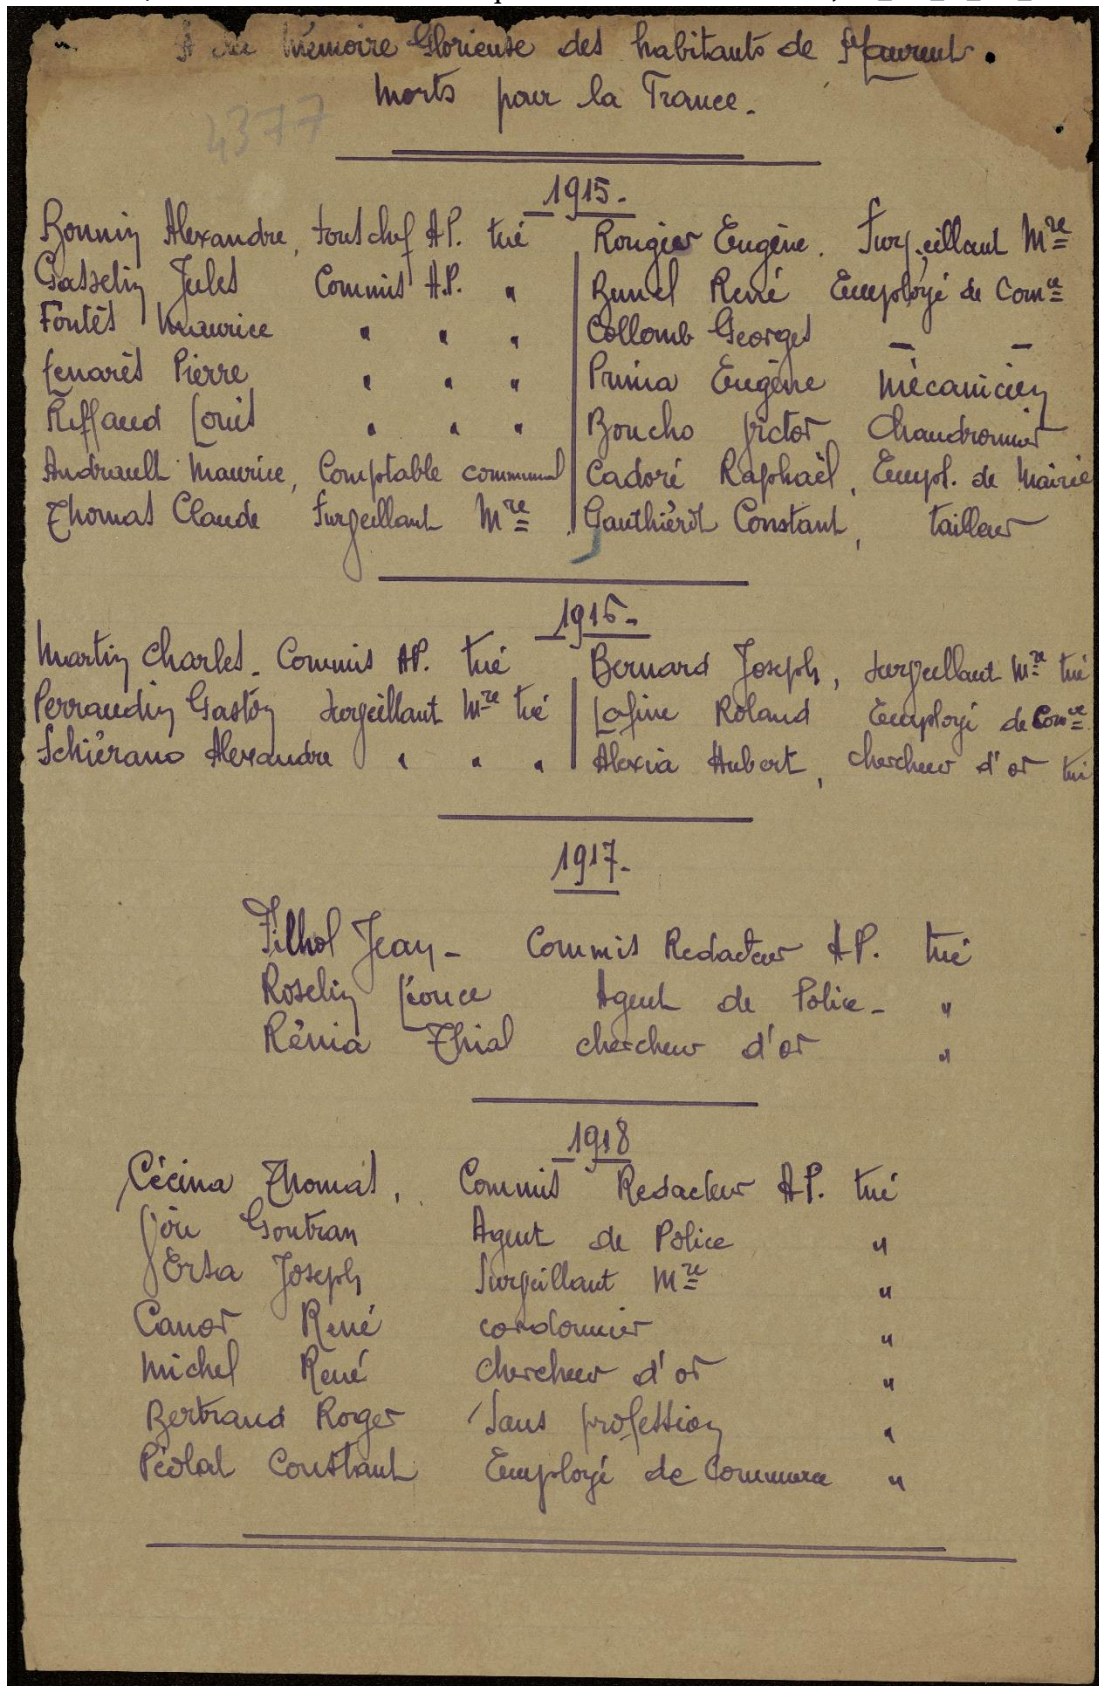 A la Mémoire Glorieuse des habitants de St Laurent.
Morts pour la France.
4377
1915.
Bonnin Alexandre, Sous chef AP. tué
Gasselin Jules Commis A.P. "
Fontès Maurice " " "
Lenarès Pierre " " "
Riffaud Louis " " "
Andrault Maurice, Comptable communal
Thomas Claude Surveillant Mre
Rougier Eugène. Surveillant Mre
Brunel René Employé de Comce
Collomb Georges — —
Prima Eugène mécanicien
Boucho Victor Chaudronnier
Cadoré Raphaël, Empl. de Mairie
Gauthiérot Constant, tailleur
1916.
Martin Charles. Commis AP. tué
Perraudin Gaston Surveillant Mre tué
Schiérano Alexandre " " "
Bernard Joseph, Surveillant Mre tué
Lafine Roland Employé de Comce
Alexia Hubert, chercheur d'or tué
1917.
Filhol Jean - Commis Redacteur AP. tué
Roselin Léonce Agent de Police - "
Rénia Thial chercheur d'or "
1918
Cécina Thomas, Commis Redacteur AP. tué
Gontran Agent de Police "
Ersa Joseph Surveillant Mre "
Canor René cordonnier "
Michel René chercheur d'or "
Bertrand Roger Sans profession "
Péolat Constant Employé de Commerce "